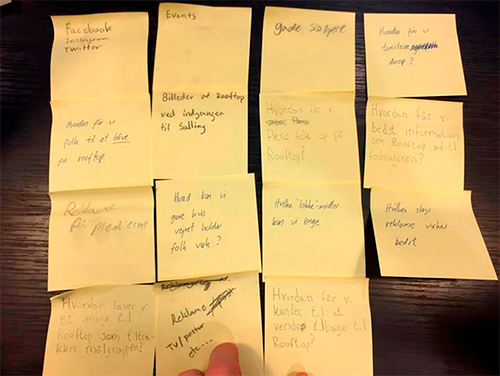 Facebook
Instagram
Twitter
Events
gade sælgere
Hvordan får vi
turisterne
derop?
Hvordan får vi
folk til at blive
på rooftop
Billeder af Rooftop
ved indgangen
til Salling
Hvordan får vi
flere folk op på
Rooftop?
Hvordan får vi
bedst information
om Rooftop ud til
forbrugeren?
Reklame
på medierne
Hvad kan vi
gøre hvis
vejret holder
folk væk?
Hvilke "lokke"-midler
kan vi bruge
Hvilken slags
reklame virker
bedst
Hvordan laver vi
et
til
Rooftop som tiltræ-
kker målgruppen?
Reklame
TV/postor
etc...
Hvordan får vi
kunder til at
vende tilbage til
Rooftop?